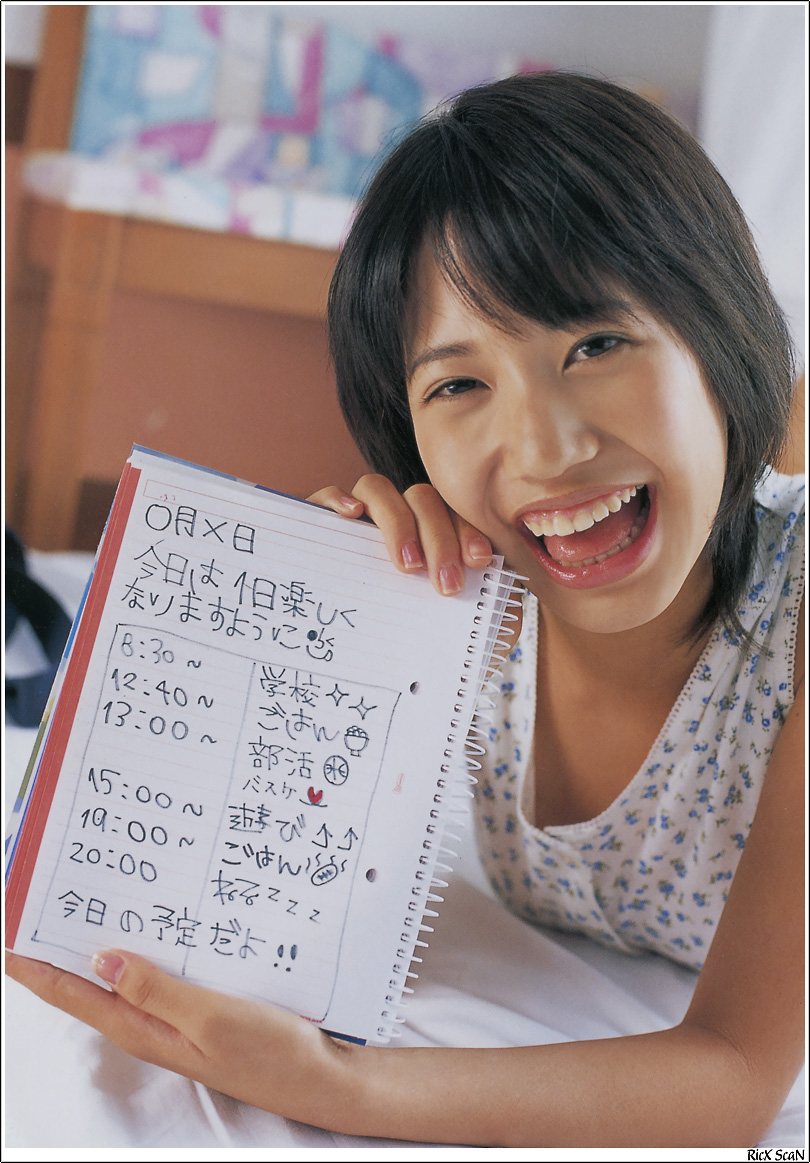 〇月×日
今日は1日楽しく
なりますように
8:30~ 学校
12:40~ ごはん
13:00~ 部活
バスケ
15:00~ 遊び↑↑
19:00~ ごはん
20:00 ねるzzz
今日の予定だよ!!
RicX ScaN